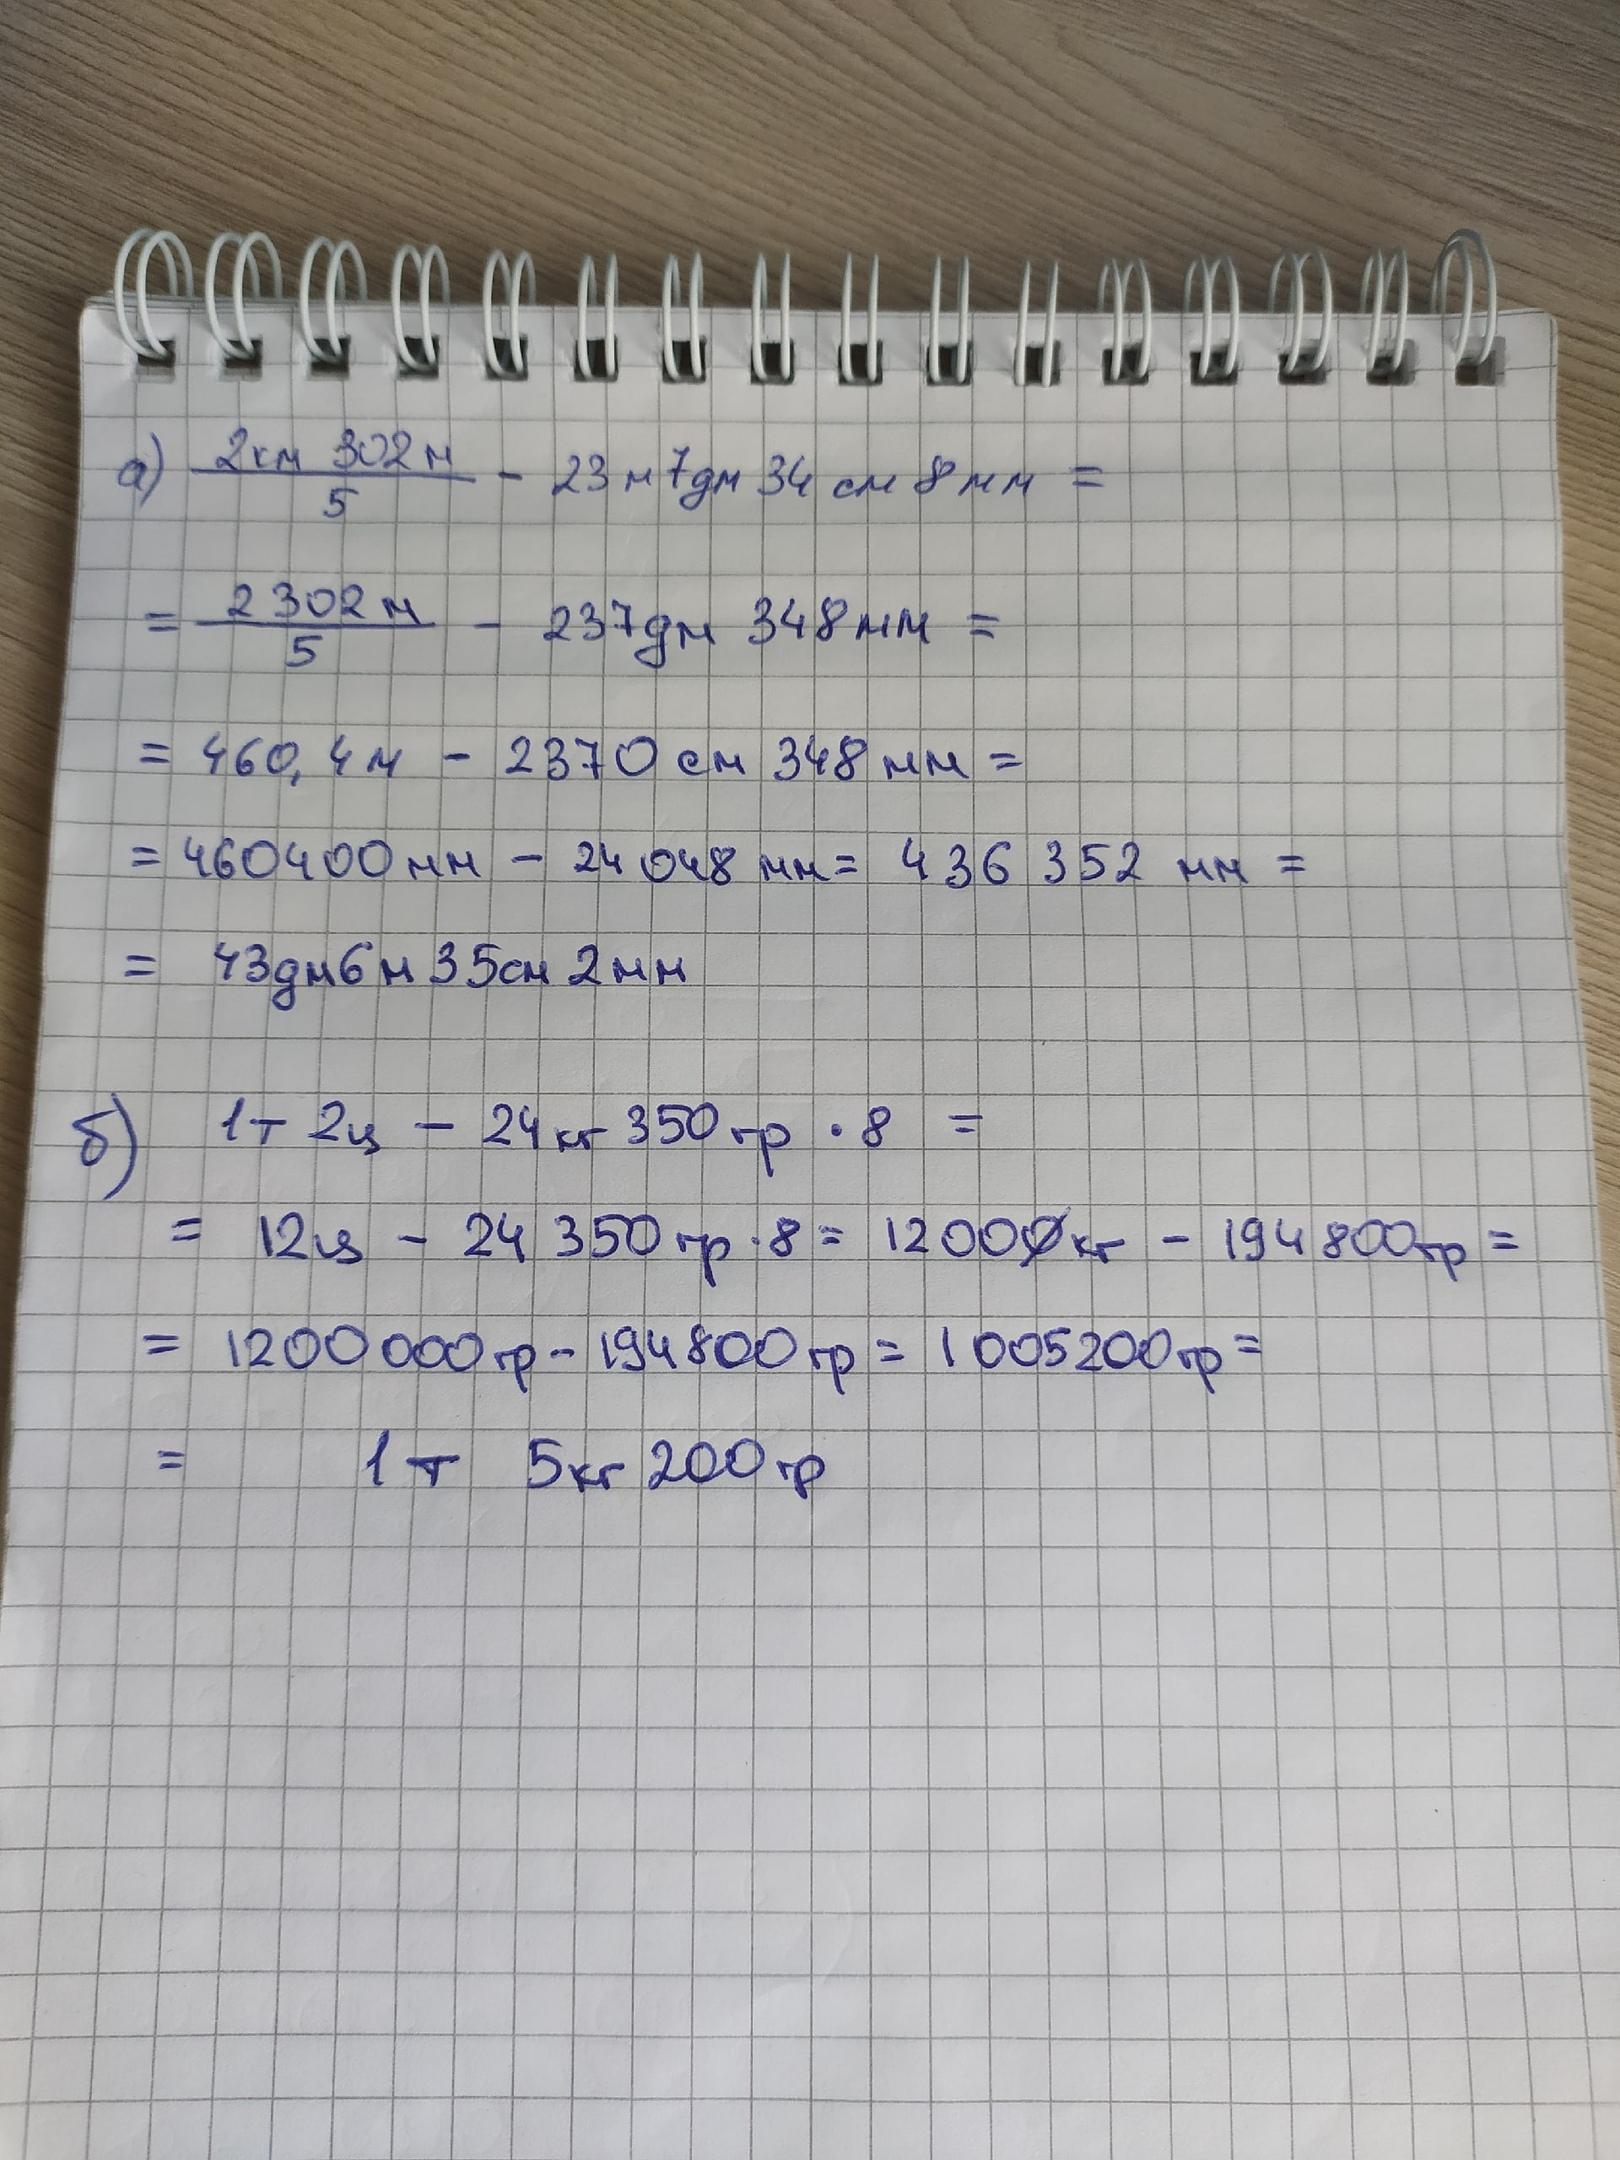 а) 2км 302м / 5 - 23м 7дм 34 см 8мм =
= 2302м / 5 - 237дм 348мм =
= 460,4м - 2370см 348мм =
= 460400мм - 24048мм = 436352 мм =
= 43дм 6м 35см 2мм
б) 1т 2ц - 24кг 350гр · 8 =
= 12ц - 24350гр · 8 = 1200кг - 194800гр =
= 1200000гр - 194800гр = 1005200гр =
= 1т 5кг 200гр